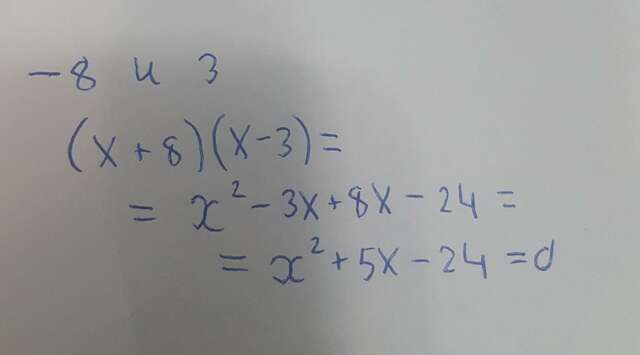 -8 и 3
(x+8)(x-3)=
= x²-3x+8x-24=
= x²+5x-24=0